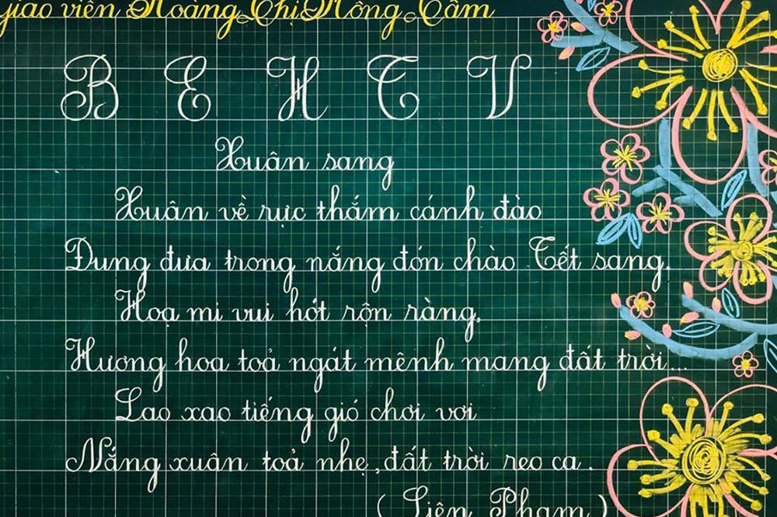 giáo viên Hoàng Thị Hồng Cẩm
B E H T V
Xuân sang
Xuân về rực thắm cánh đào
Đung đưa trong nắng đón chào Tết sang.
Hoạ mi vui hót rộn ràng,
Hương hoa toả ngát mênh mang đất trời...
Lao xao tiếng gió chơi vơi
Nắng xuân toả nhẹ, đất trời reo ca.
( Liên Phạm )